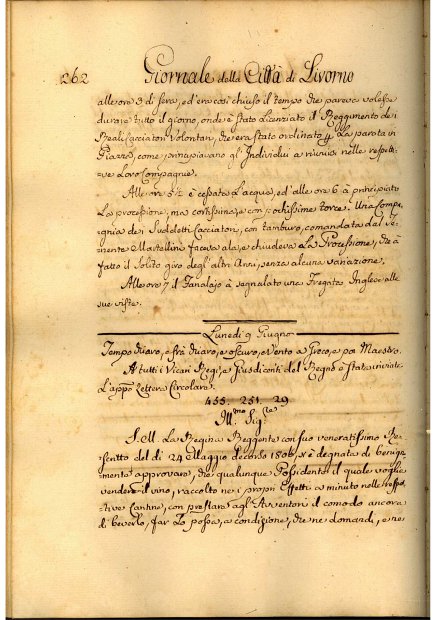 262 Giornale della Città di Livorno
alle ore 3 di sera, ed era così chiuso il tempo che pareva volesse
durare tutto il giorno, onde è stato Licenziato il Reggimento dei
Reali Cacciatori Volontari, che era stato ordinato p La parata in
Piazza, come principiavano gl' Individui a riunirsi nelle respet-
tive Loro Compagnie.
Alle ore 5½ è cessata L'acqua, ed alle ore 6 à principiato
La processione, ma cortissima, e con pochissime torce. Una Compa-
gnia dei Suddetti Cacciatori, con tamburo, comandata dal Te-
nente Martellini faceva ala, e chiudeva La Processione, che à
fatto il Solito giro degl' altri Anni, senza alcuna variazione.
Alle ore 7 il Fanalajo à segnalato una Fregata Inglese alle
sue viste.
Lunedì 9 Giugno
Tempo chiaro, e frà chiaro, e oscuro, e Vento a Greco, e poi Maestro.
A tutti i Vicari Regi, e Giusdicenti del Regno è stata inviata
L'appa Lettera Circolare.
455. 251. 29
Ill.mo Sig.re
S. M. La Regina Reggente con suo veneratissimo Re-
scritto del dì 24 Maggio decorso 1806, si è degnata di benigna-
mente approvare, che qualunque Possidente il quale voglia
vendere il vino, raccolto nei propri Effetti a minuto nelle respet-
tive Cantine, con prestare agl' Avventori il comodo ancora
di beverlo, far Lo possa, a condizione, che ne domandi, e ne